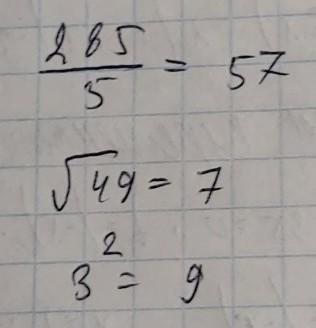 285/5 = 57
√49 = 7
3² = 9